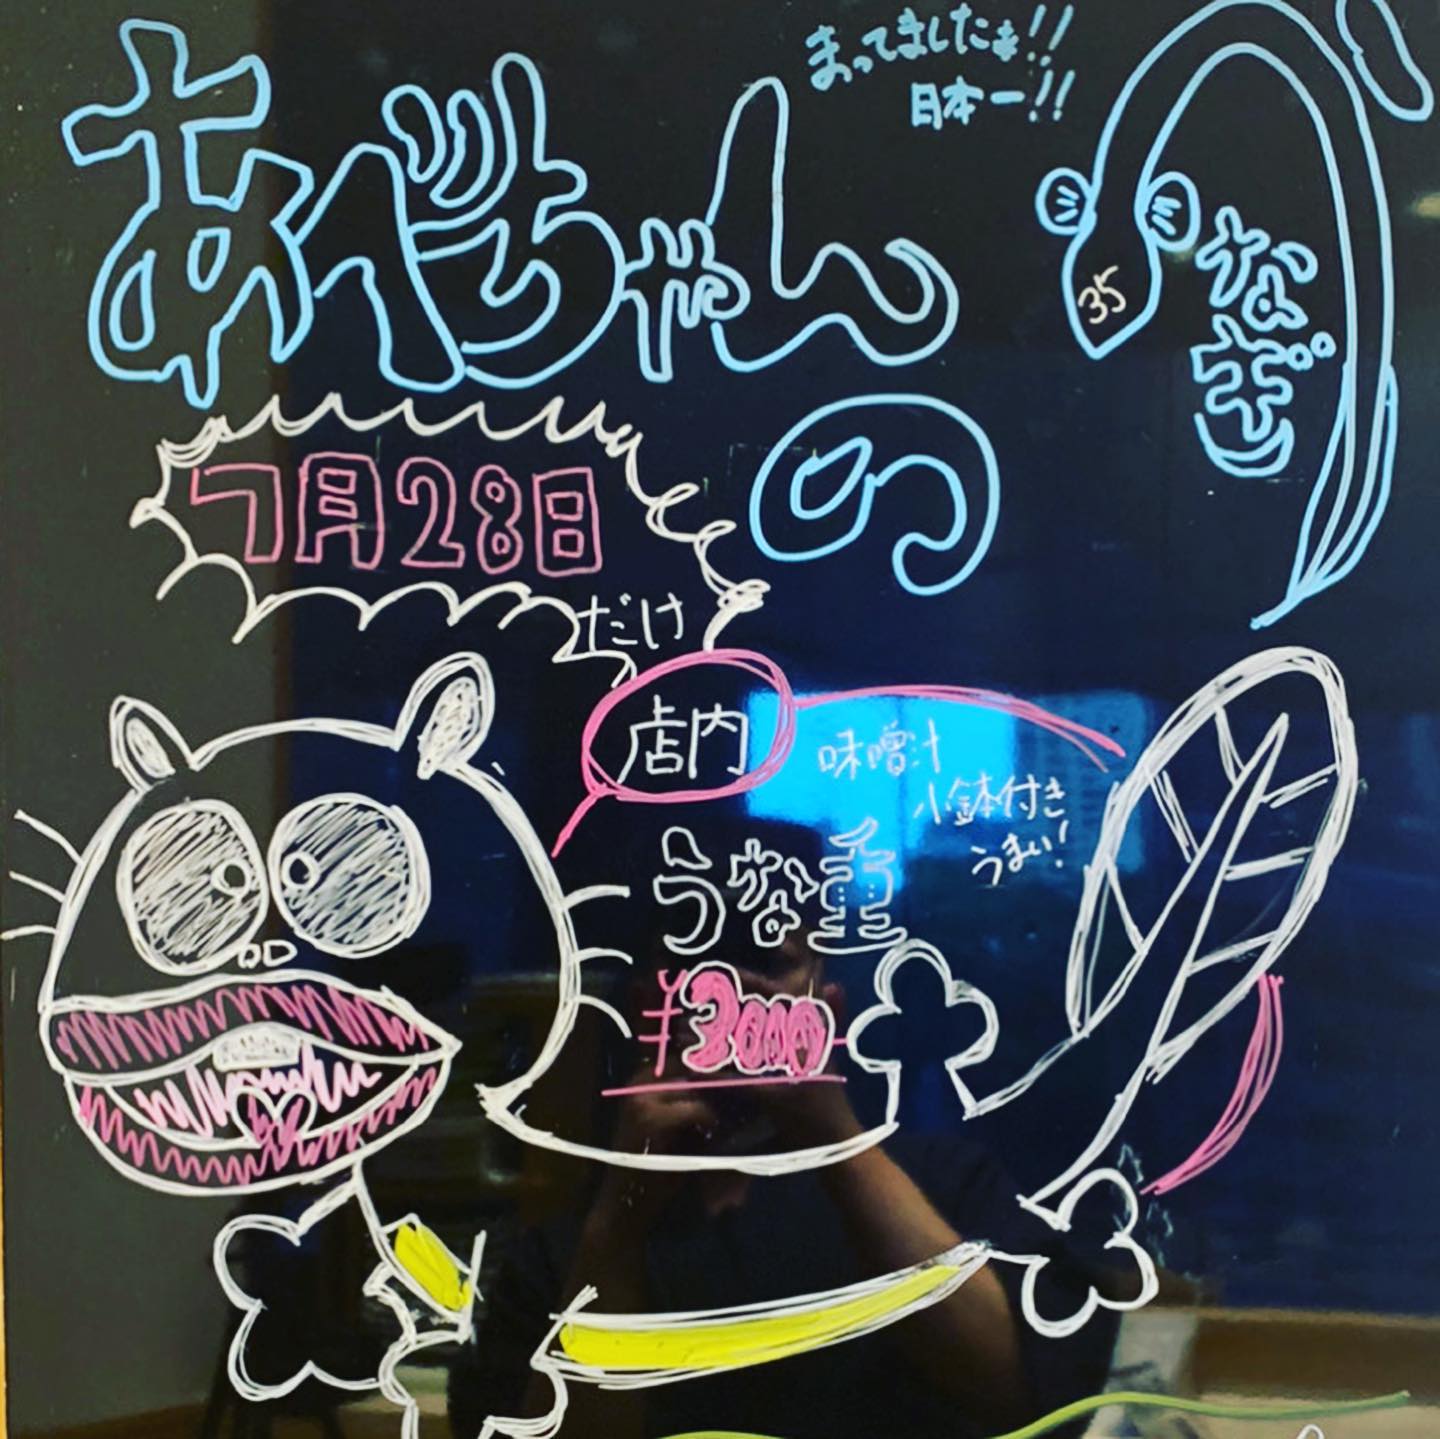 まってましたぁ!!
日本一!!
あべちゃん
の
うなぎ
35
7月28日
だけ
店内
味噌汁
小鉢付き
うまい!
うな重
¥3000